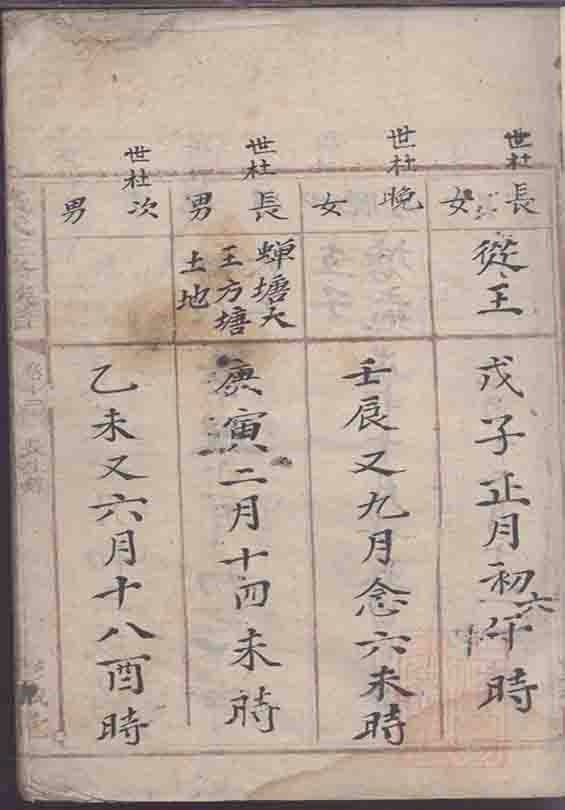 世杜
長女
從王
戊子正月初六午時
世杜
晚女
壬辰又九月念六未時
世杜
長男
蟬塘大
王方塘
土地
庚寅二月十四未時
世杜
次男
乙未又六月十八酉時